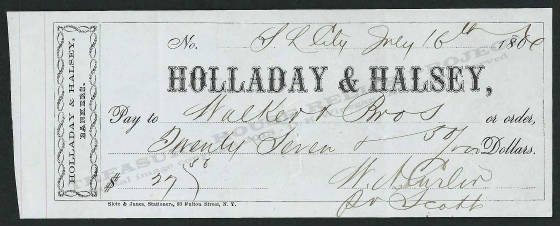 No. S. L. City July 16th 186
HOLLADAY & HALSEY,
Pay to Walker & Bros or order,
Twenty Seven & 50/100 Dollars.
$ 27 50
W. A. Carter
pr Scott
Slote & Janes, Stationers, 93 Fulton Street, N. Y.
HOLLADAY & HALSEY,
BANKERS.